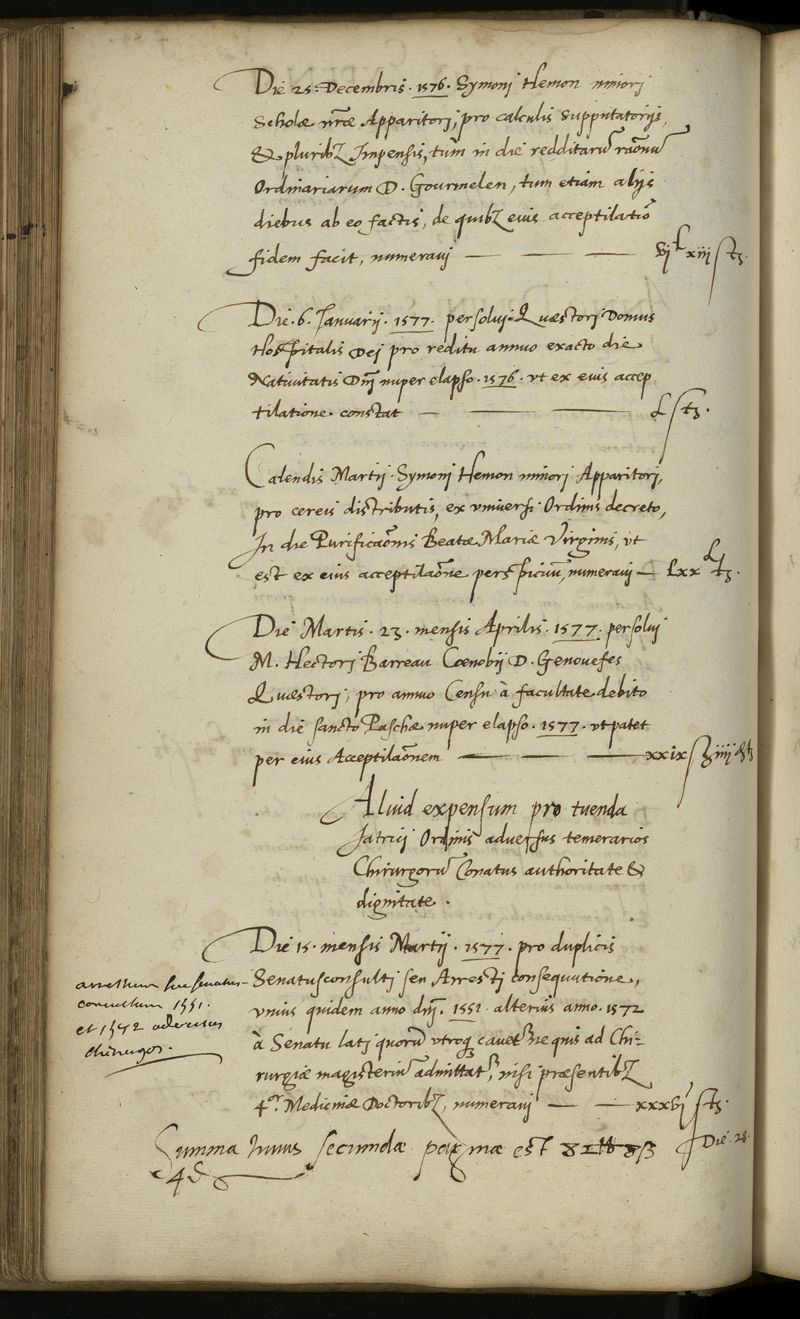 Die 25. Decembris. 1576. Symoni Hemon minori
scholæ nr̃æ Apparitori, pro calculis supputatorijs,
& pluribꝫ Impensis, tum in die redditarũ raõnũ
Ordinariarum D. Gourmelen, tum etiam alijs
diebus ab eo factis, de quibꝫ eius acceptilatiõ
fidem facit, numeravi — — — vjL xiij s tz.
Die. 6. Januarij. 1577. persolvi Quæstori Domus
Hospitalis Dej pro reditu annuo exacto die
Nativitatis Dnj nuper elapso. 1576. vt ex eius accep
tilatione constat — — — L s tz.
Calendis Martij Symonj Hemon minori Apparitori,
pro cereis distributis, ex vniversi Ordinis decreto,
In die Purificaõnis Beatæ Mariæ Virginis, vt
est ex eius acceptilaõne perspicuũ, numeravi — Lxx L tz.
Die Martis. 23. mensis Aprilis. 1577. persolvi
M. Hectori Barreau Cœnobij D. Genouefes
Quæstori, pro annuo Censu à facultate debito
in die sancto Paschæ nuper elapso. 1577. vt patet
per eius Acceptilaõnem — — — xxix s iiij
Aliud expensum pro tuenda
Iatricj Ordinis adversus temerarios
Chirurgorũ Conatus authoritate &
dignitate.
Die 15. mensis Martij. 1577. pro duplicis
Senatusconsulti seu Arresti consequutione,
vnius quidem anno dnj. 1551. alterius anno. 1572
à Senatu lati quorũ vtroq cavetr ne quis ad Chi-
rurgiæ magisteriũ admittatr, nisi præsentibꝫ
4or Medicinæ Doctoribꝫ, numeravi — — xxxvj s tz.
arrestum seu senatus-
consultum 1551.
et 1572 adversus
chirurgos.
Summa huius secundæ paginæ est
4 d
Die. 28.